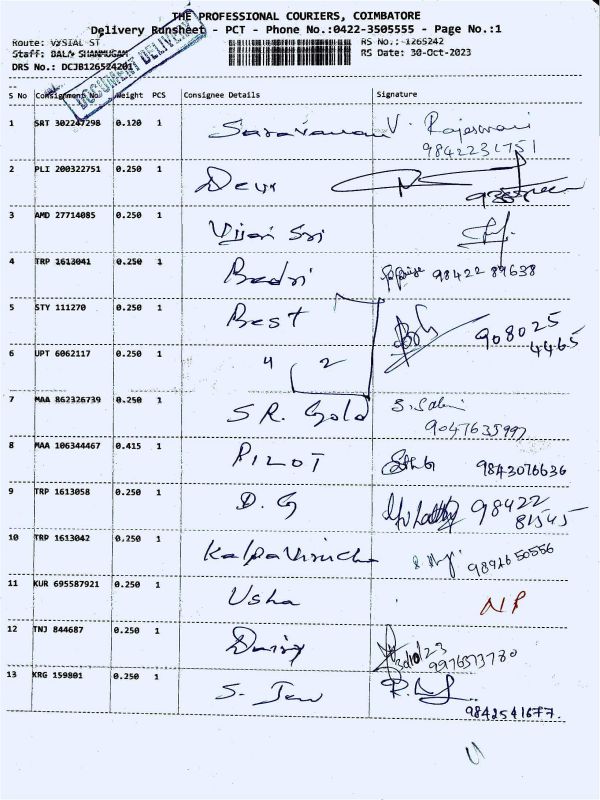 THE PROFESSIONAL COURIERS, COIMBATORE
Delivery Runsheet - PCT - Phone No.:0422-3505555 - Page No.:1
Route: VYSIAL ST RS No.: 1265242
Staff: BALA SHANMUGAM RS Date: 30-Oct-2023
DRS No.: DCJB126524201
DOCUMENT DELIVERY
S No Consignment No. Weight PCS Consignee Details Signature
1 SRT 302247298 0.120 1 Saravanan V. Rajeswari
9842231751
2 PLI 200322751 0.250 1 Devi
3 AMD 27714085 0.250 1 Vijai Sri
4 TRP 1613041 0.250 1 Badri 98422 89638
5 STY 111270 0.250 1 Best 908025
4465
6 UPT 6062117 0.250 1 4 2
7 MAA 862326739 0.250 1 S R. Gold S. Sabi
9047635997
8 MAA 106344467 0.415 1 PILOT 9843076636
9 TRP 1613058 0.250 1 D. G 98422
81545
10 TRP 1613042 0.250 1 Kalpavirucha 9894650556
11 KUR 695587921 0.250 1 Usha NP
12 TNJ 844687 0.250 1 Daisy 30/10/23
9976573780
13 KRG 159801 0.250 1 S. Jew
9842541677.